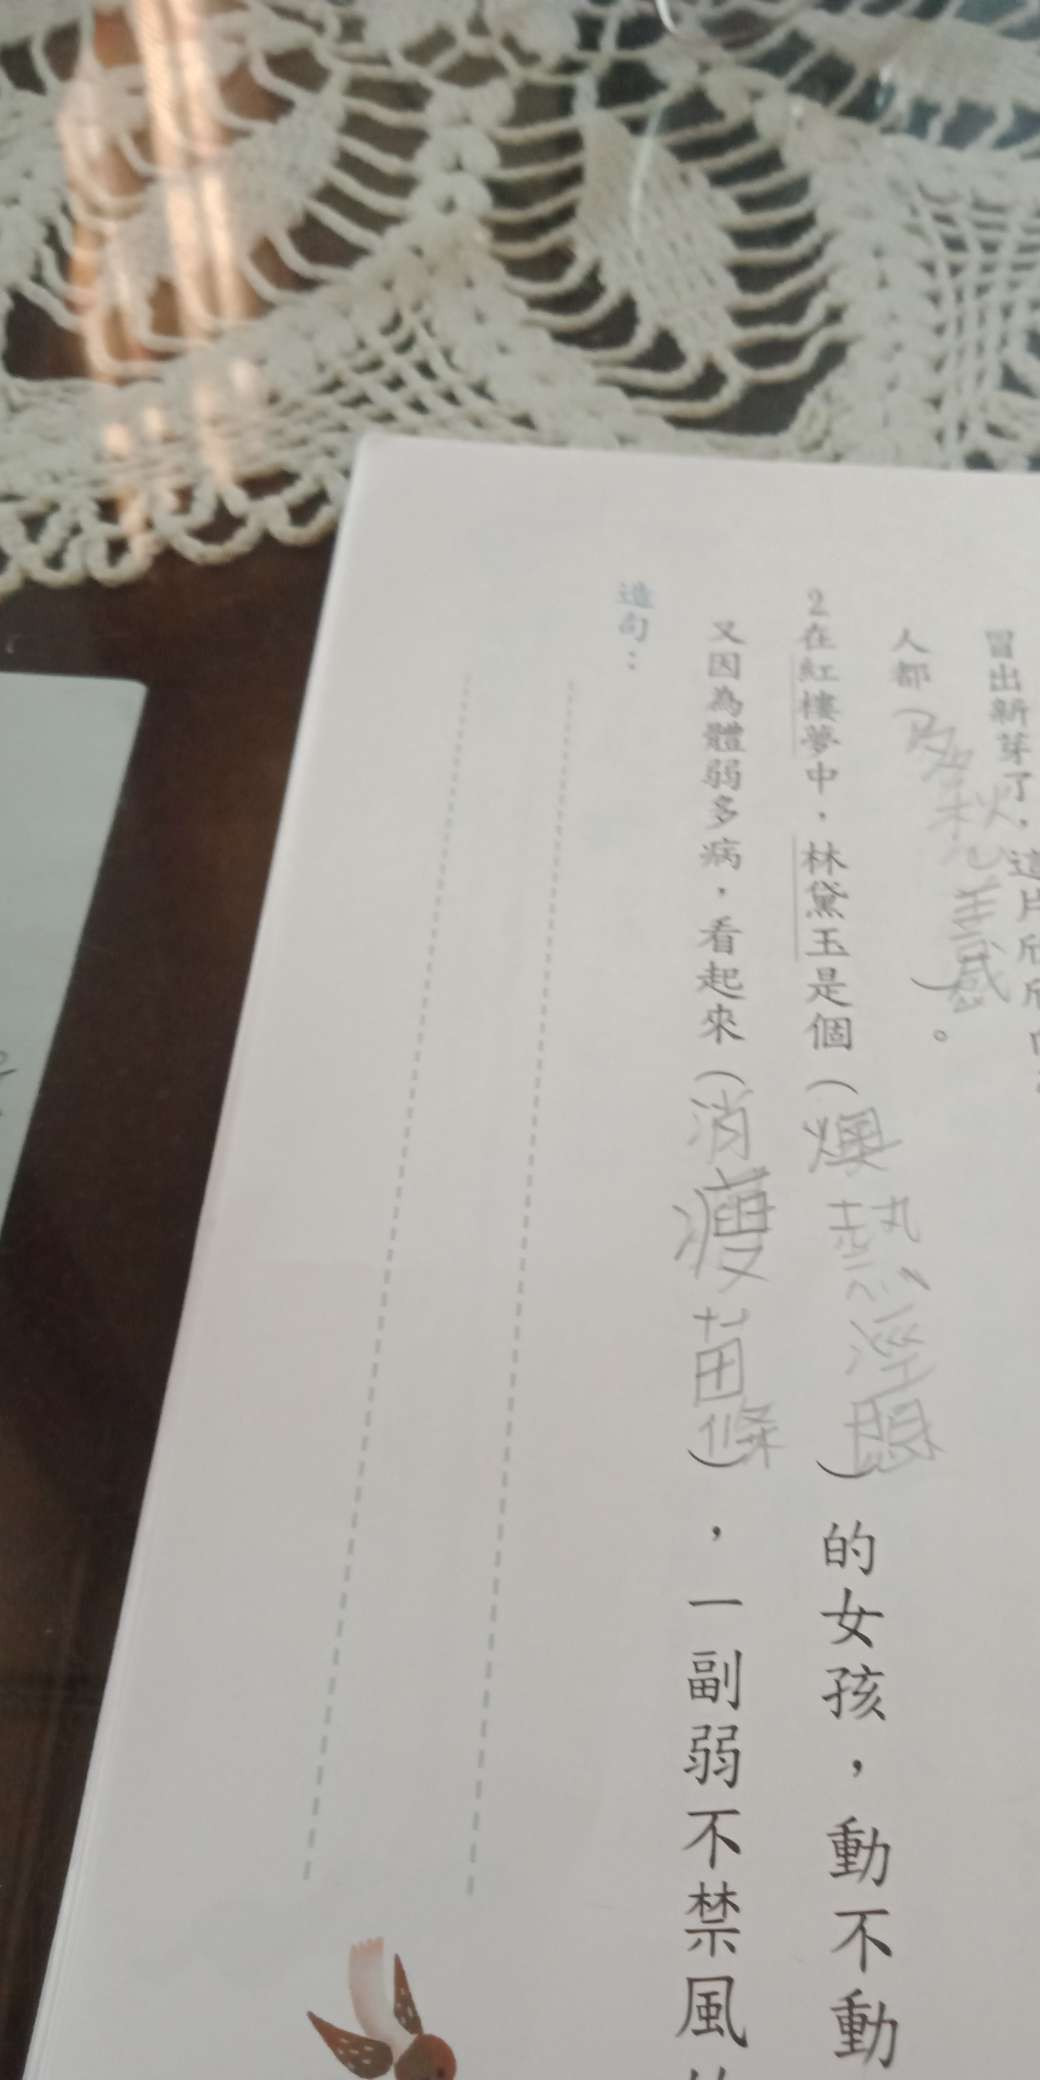 冒出新芽了，這片欣欣向
人都（多愁善感）。
2在紅樓夢中，林黛玉是個（燠熱溼悶）的女孩，動不動
又因為體弱多病，看起來（消瘦苗條），一副弱不禁風
造句：